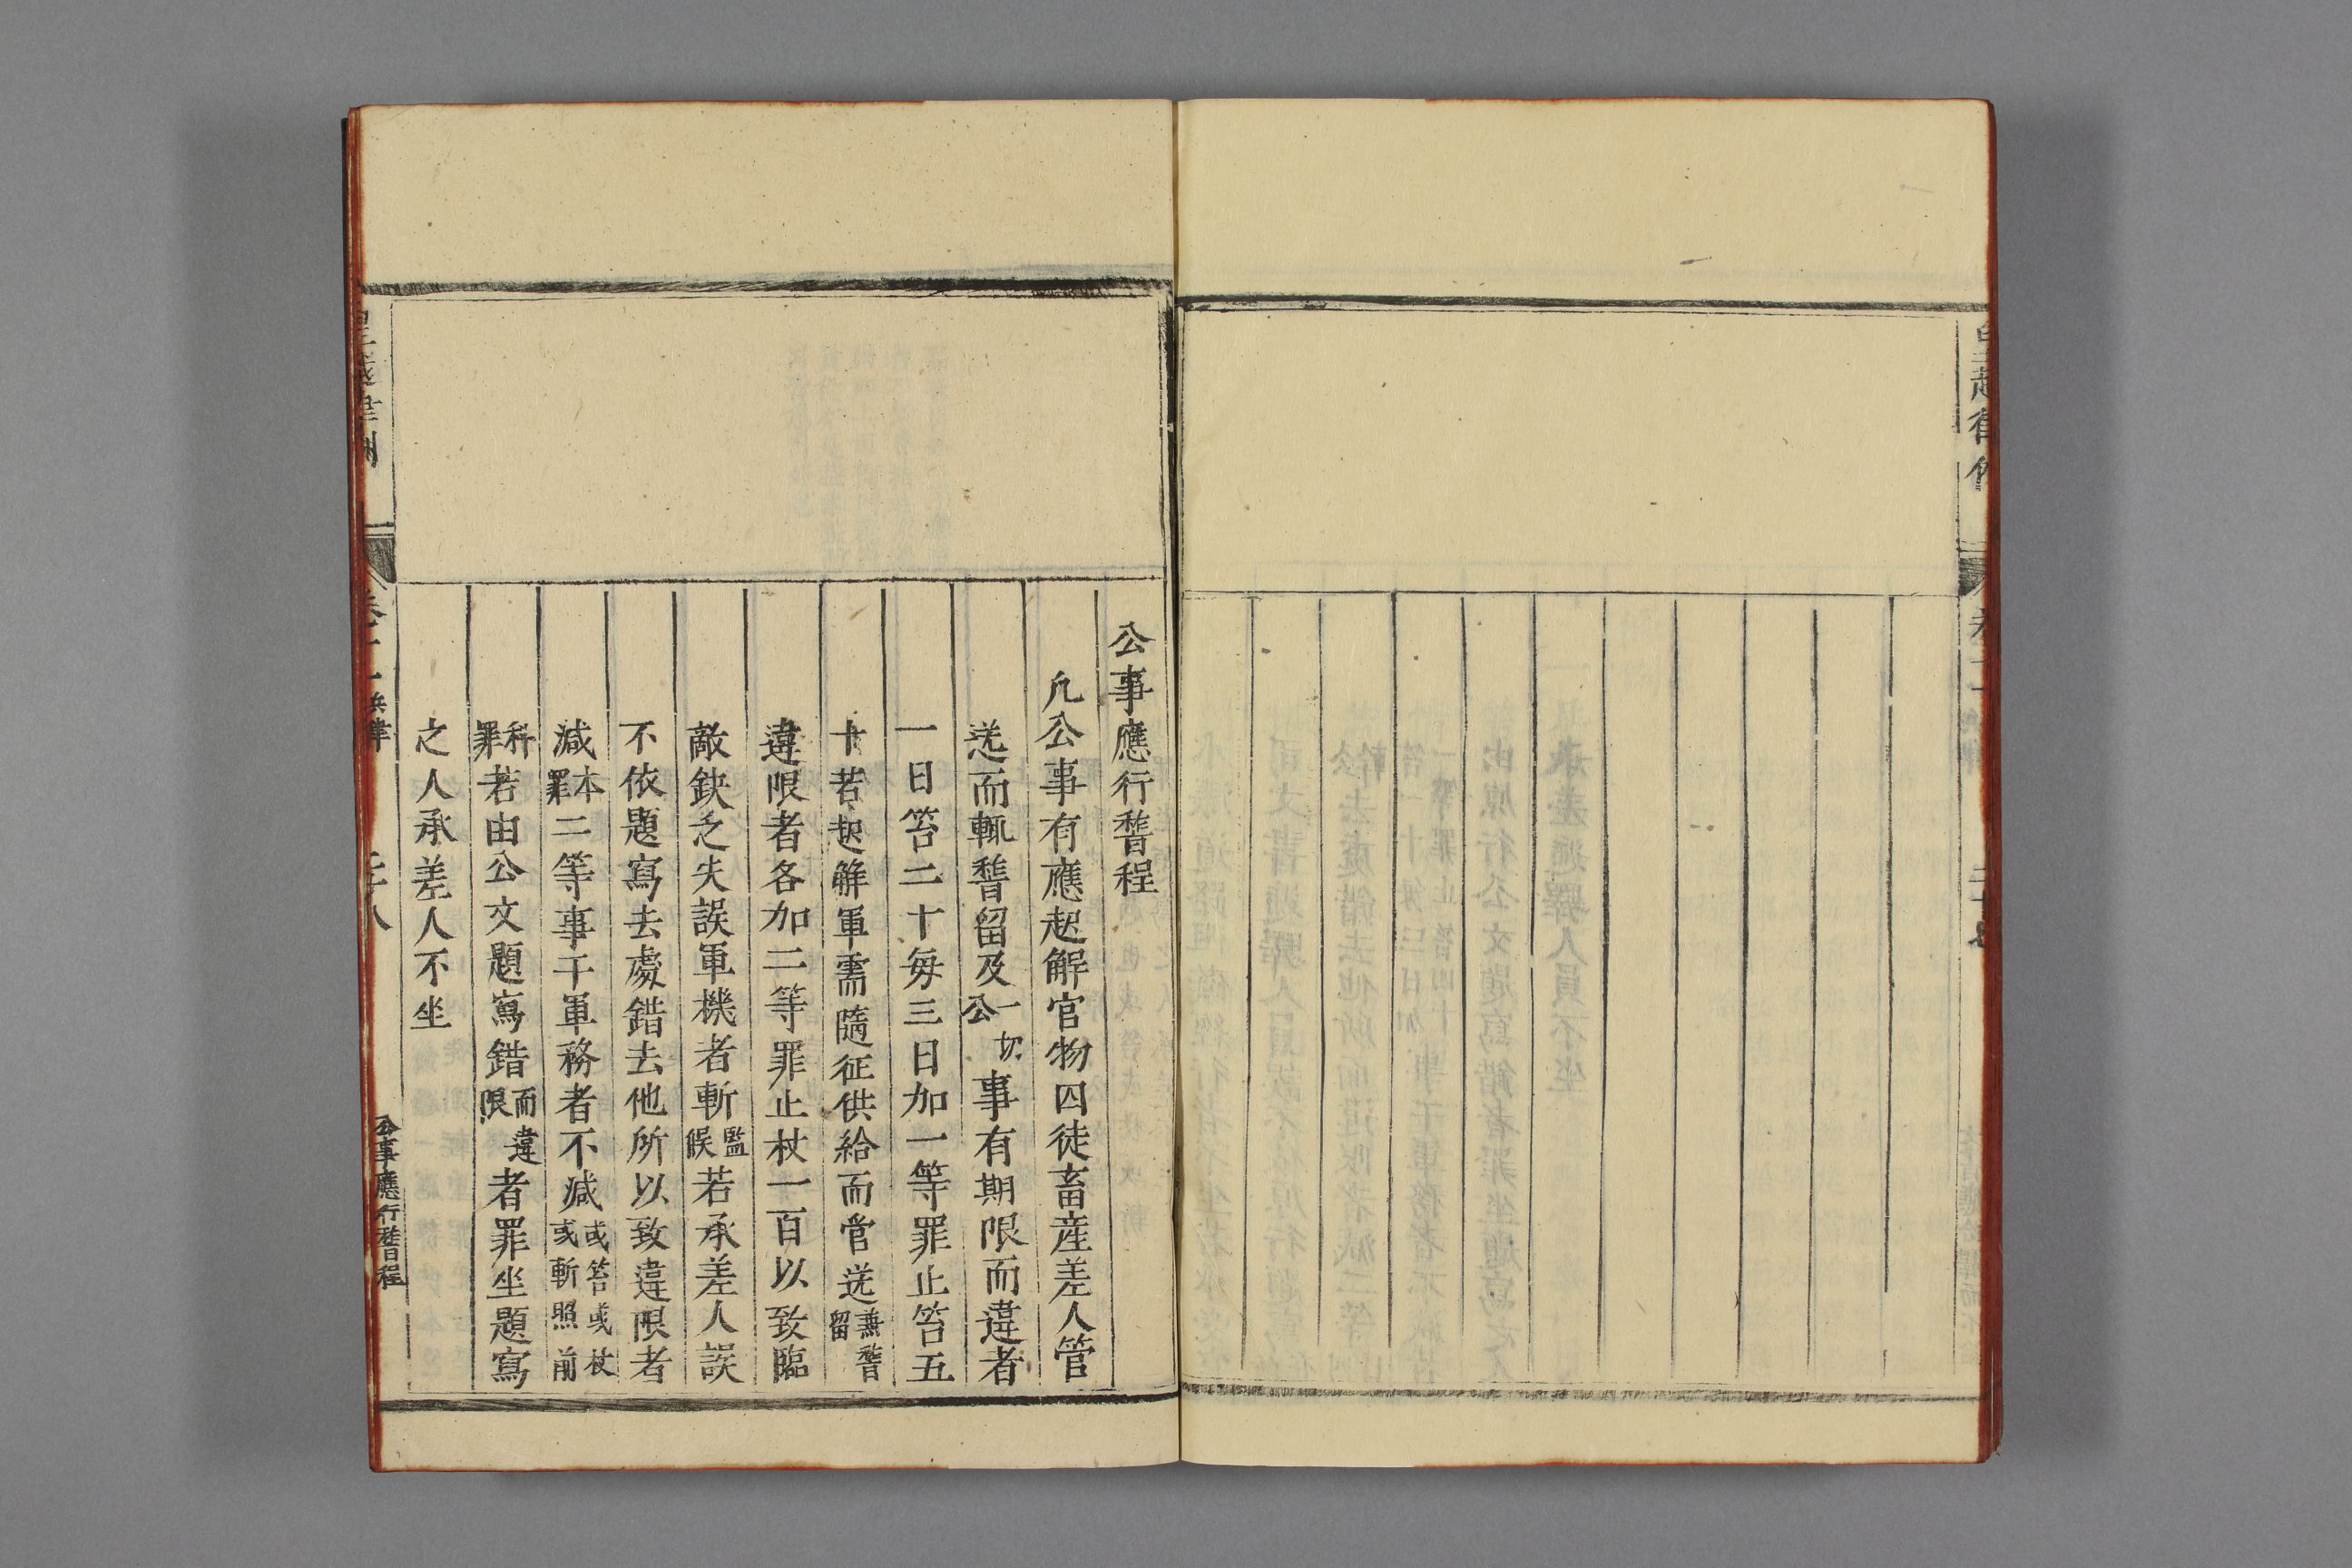 公事應行朁程
凡公事有應起解官物囚徒畜産差人管
送而輒朁留及一切公事有期限而違者
一日笞二十每三日加一等罪止笞五
十若起解軍需隨征供給而管送兼朁留
違限者各加二等罪止杖一百以致臨
敵缺乏失誤軍機者斬監候若承差人誤
不依題寫去處錯去他所以致違限者
減本罪二等事干軍務者不減或笞或杖或斬照前
科罪若由公文題寫錯而違限者罪坐題寫
之人承差人不坐
公事應行朁程